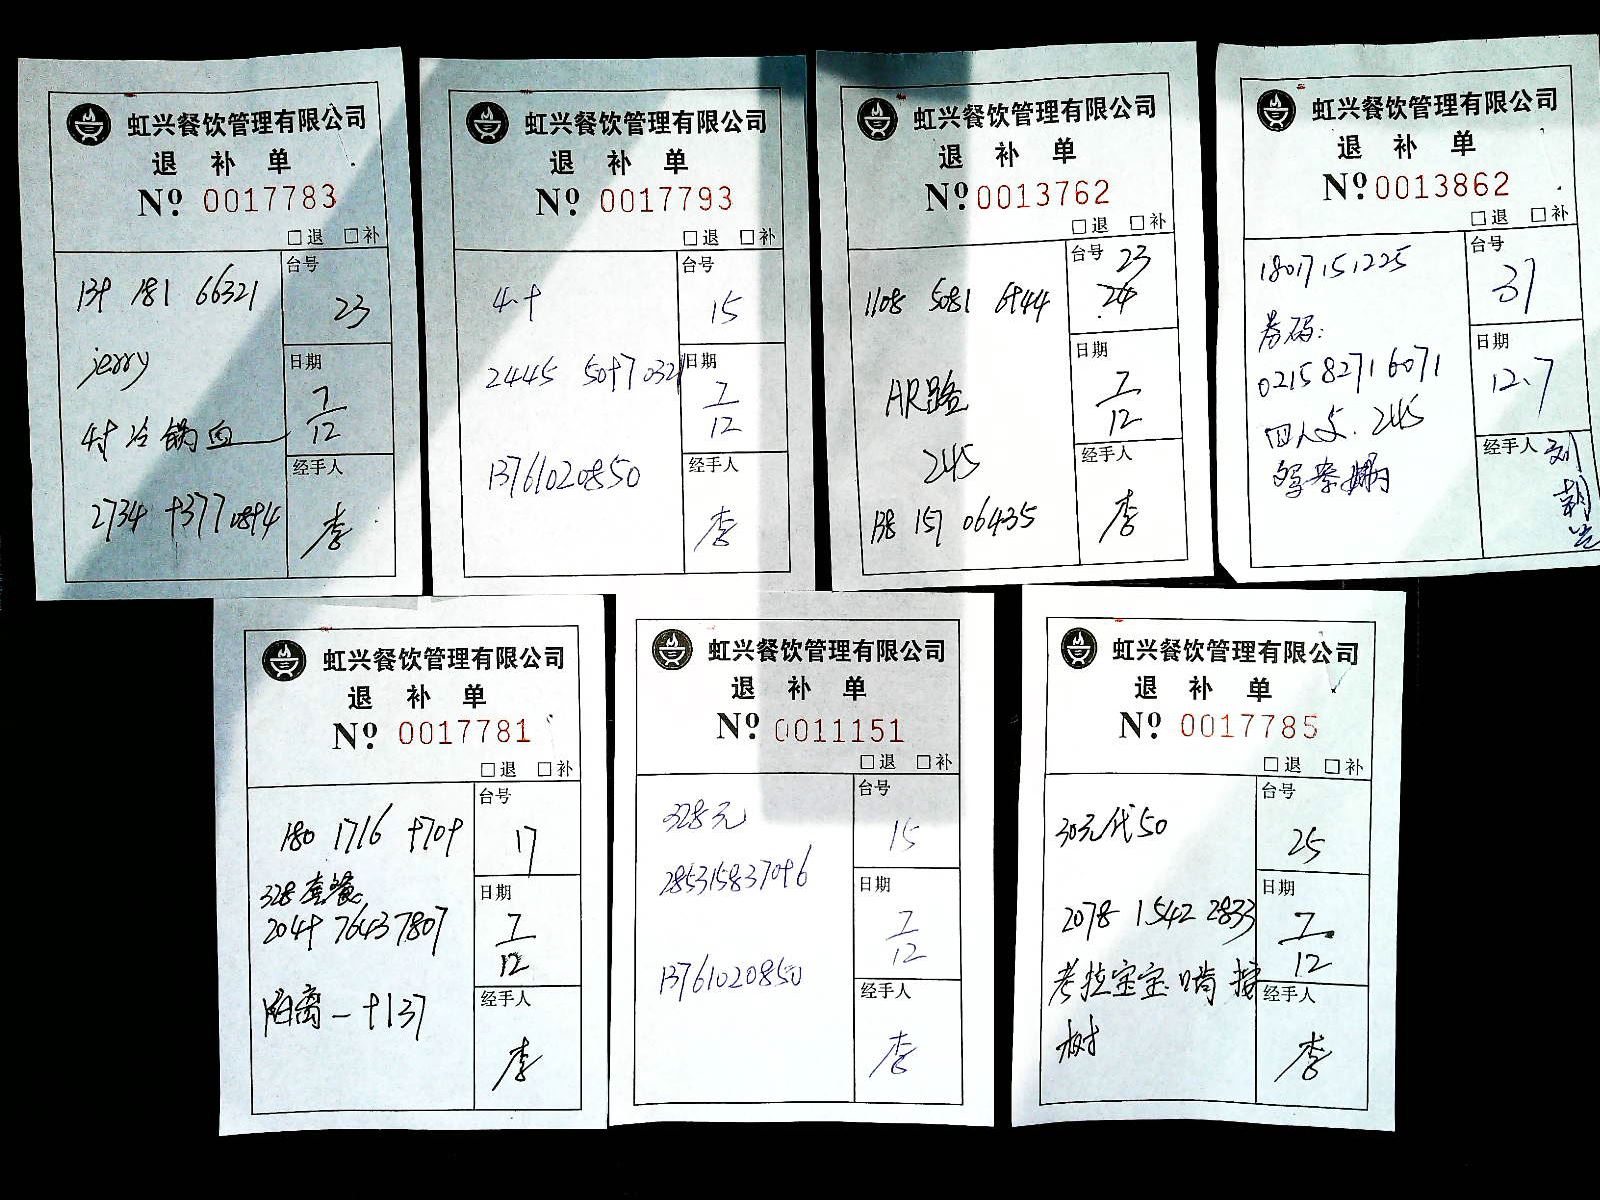 虹兴餐饮管理有限公司
退 补 单
Nº 0017783
□退 □补
139 181 66321
台号
23
jerry
日期
7/12
经手人
2734 93770894
李
虹兴餐饮管理有限公司
退 补 单
Nº 0017793
□退 □补
4.9
台号
15
2445 50970321
日期
7/12
13761020850
经手人
李
虹兴餐饮管理有限公司
退 补 单
Nº 0013762
□退 □补
台号
23
24
1108 5081 6944
AR路
日期
7/12
245
经手人
138 157 06435
李
虹兴餐饮管理有限公司
退 补 单
Nº 0013862
□退 □补
18017151225
台号
31
券码:
021582716071
日期
12.7
四人 245
经手人
刘
虹兴餐饮管理有限公司
退 补 单
Nº 0017781
□退 □补
180 1716 9709
台号
17
328套餐
2049 76437807
日期
7/12
距离-9137
经手人
李
虹兴餐饮管理有限公司
退 补 单
Nº 0011151
□退 □补
328元
台号
15
285315837096
日期
7/12
13761020850
经手人
李
虹兴餐饮管理有限公司
退 补 单
Nº 0017785
□退 □补
30元代50
台号
25
2078 1542 2833
日期
7/12
考拉宝宝啃
树
经手人
李